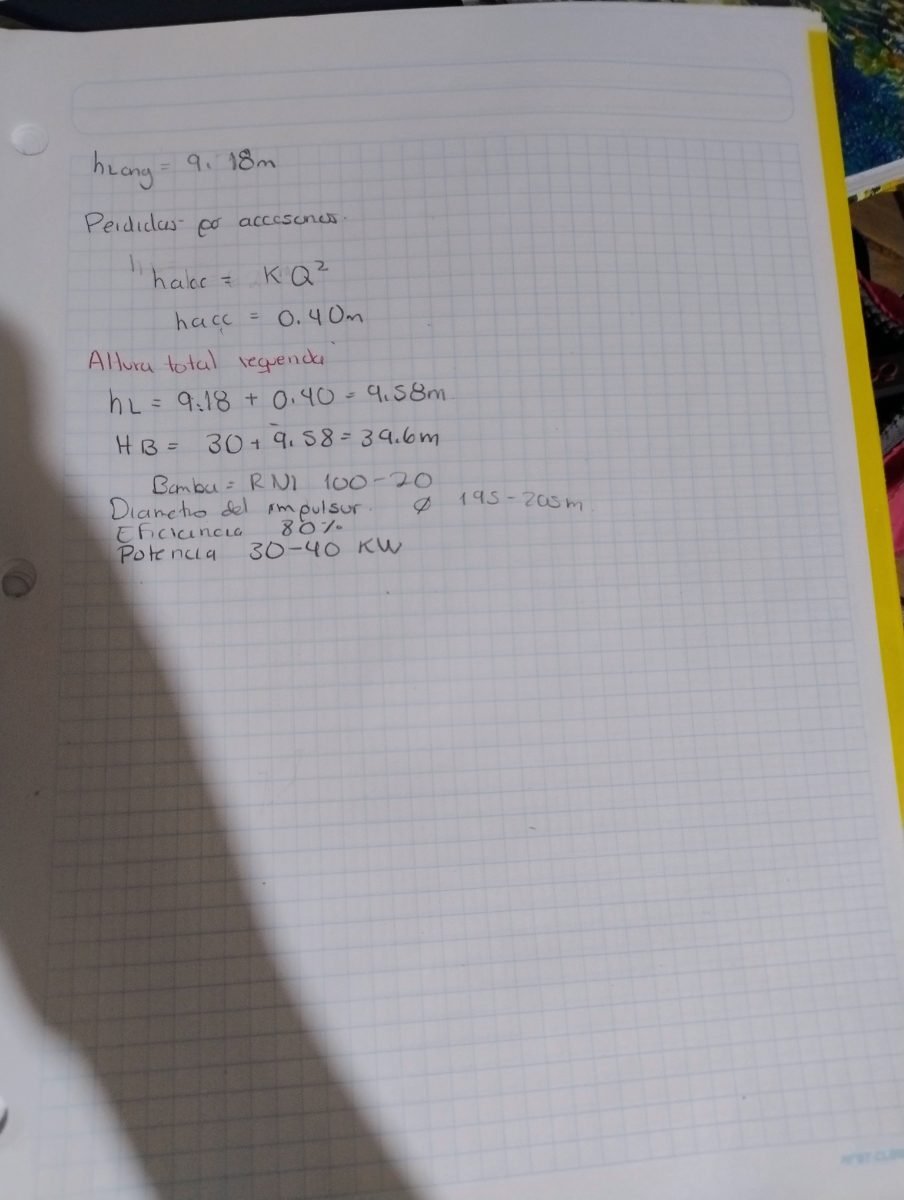 hLong = 9.18m
Perdidas por accesorios.
hacc = KQ²
hacc = 0.40m
Altura total requerida
hL = 9.18 + 0.40 = 9.58m
HB = 30 + 9.58 = 39.6m
Bomba = RNI 100-20
Diametro del impulsor. Ø 195-205m
Eficiencia 80%
Potencia 30-40 KW